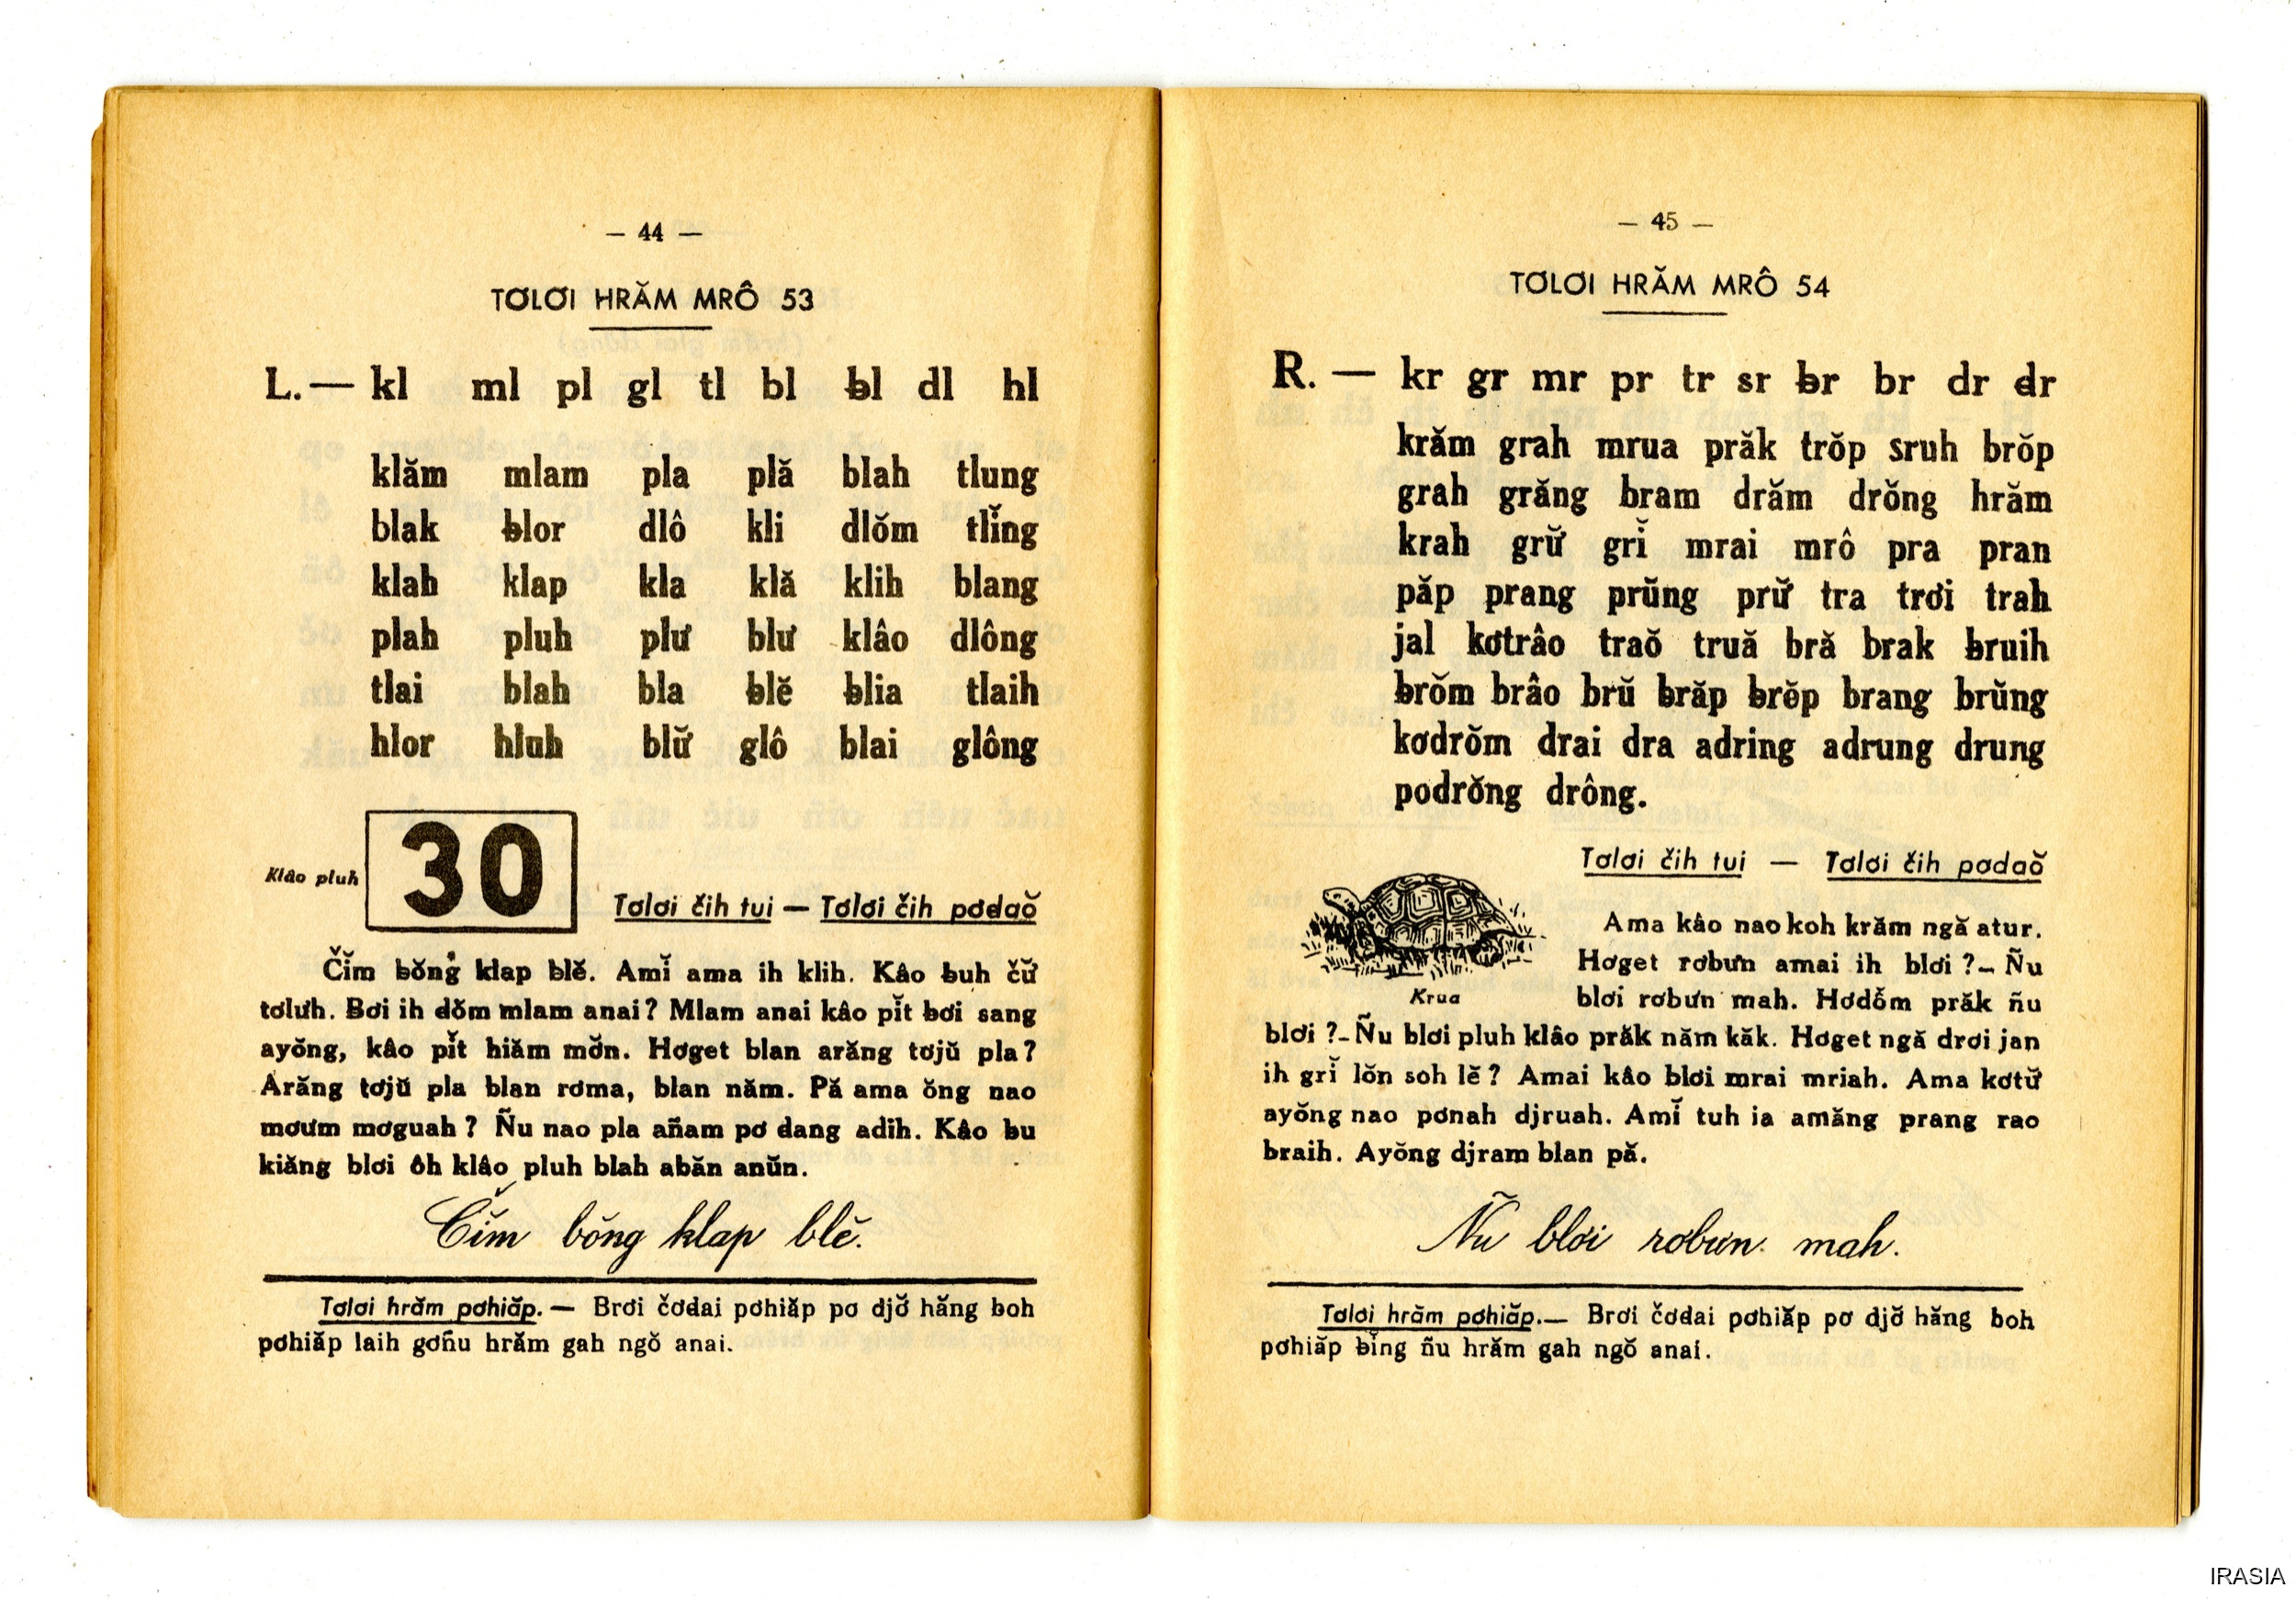 — 44 —
TƠLƠI HRĂM MRÔ 53
L. — kl ml pl gl tl bl ƀl dl hl
klăm mlam pla plă blah tlung
blak ƀlor dlô kli dlŏm tlĭng
klah klap kla klă klih blang
plah pluh plư blư klâo dlông
tlai blah bla ƀlĕ ƀlia tlaih
hlor hluh blư̆ glô blai glông
Klâo pluh
30
Tơlơi čih tui — Tơlơi čih pơđaŏ
Čĭm ƀŏng klap ƀlĕ. Amĭ ama ih klih. Kâo ƀuh čư̆
tơlưh. Bơi ih dŏm mlam anai? Mlam anai kâo pĭt ƀơi sang
ayŏng, kâo pĭt hiăm mơ̆n. Hơget blan arăng tơjŭ pla?
Arăng tơjŭ pla blan rơma, blan năm. Pă ama ŏng nao
mơưm mơguah? Ñu nao pla añam pơ đang adih. Kâo ƀu
kiăng blơi ôh klâo pluh blah abăn anŭn.
Čĭm bŏng klap blĕ.
Tơlơi hrăm pơhiăp. — Brơi čơđai pơhiăp pơ djơ̆ hăng boh
pơhiăp laih gơñu hrăm gah ngŏ anai.
— 45 —
TƠLƠI HRĂM MRÔ 54
R. — kr gr mr pr tr sr ƀr br dr đr
krăm grah mrua prăk trŏp sruh brŏp
grah grăng bram drăm drŏng hrăm
krah grư̆ grĭ mrai mrô pra pran
păp prang prŭng prư̆ tra trơi trah
jal kơtrâo traŏ truă bră brak ƀruih
ƀrŏm brâo brŭ ƀrăp ƀrĕp brang brŭng
kơdrŏm drai dra adring adrung drung
podrŏng drông.
Tơlơi čih tui — Tơlơi čih pơđaŏ
Krua
Ama kâo nao koh krăm ngă atur.
Hơget rơbưn amai ih blơi ?- Ñu
blơi rơbưn mah. Hơdŏm prăk ñu
blơi ?- Ñu blơi pluh klâo prăk năm kăk. Hơget ngă drơi jan
ih grĭ lŏn soh lĕ? Amai kâo blơi mrai mriah. Ama kơtư̆
ayŏng nao pơnah djruah. Amĭ tuh ia amăng prang rao
braih. Ayŏng djram blan pă.
Ñu blơi rơbưn mah.
Tơlơi hrăm pơhiăp. — Brơi čơđai pơhiăp pơ djơ̆ hăng boh
pơhiăp ƀĭng ñu hrăm gah ngŏ anai.
IRASIA